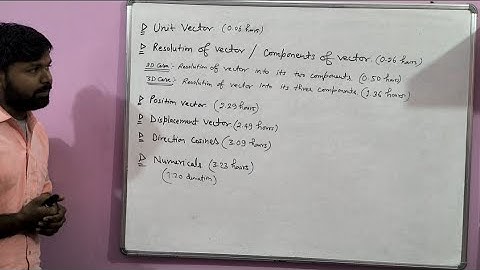 Unit Vector (0.03 hours)
Resolution of vector / Components of vector (0.26 hours)
2D Case:- Resolution of vector into its two components (0.50 hours)
3D Case:- Resolution of vector into its three components (1.36 hours)
Position vector (2.29 hours)
Displacement vector (2.49 hours)
Direction Cosines (3.09 hours)
Numericals (3.23 hours)
(1.20 duration)